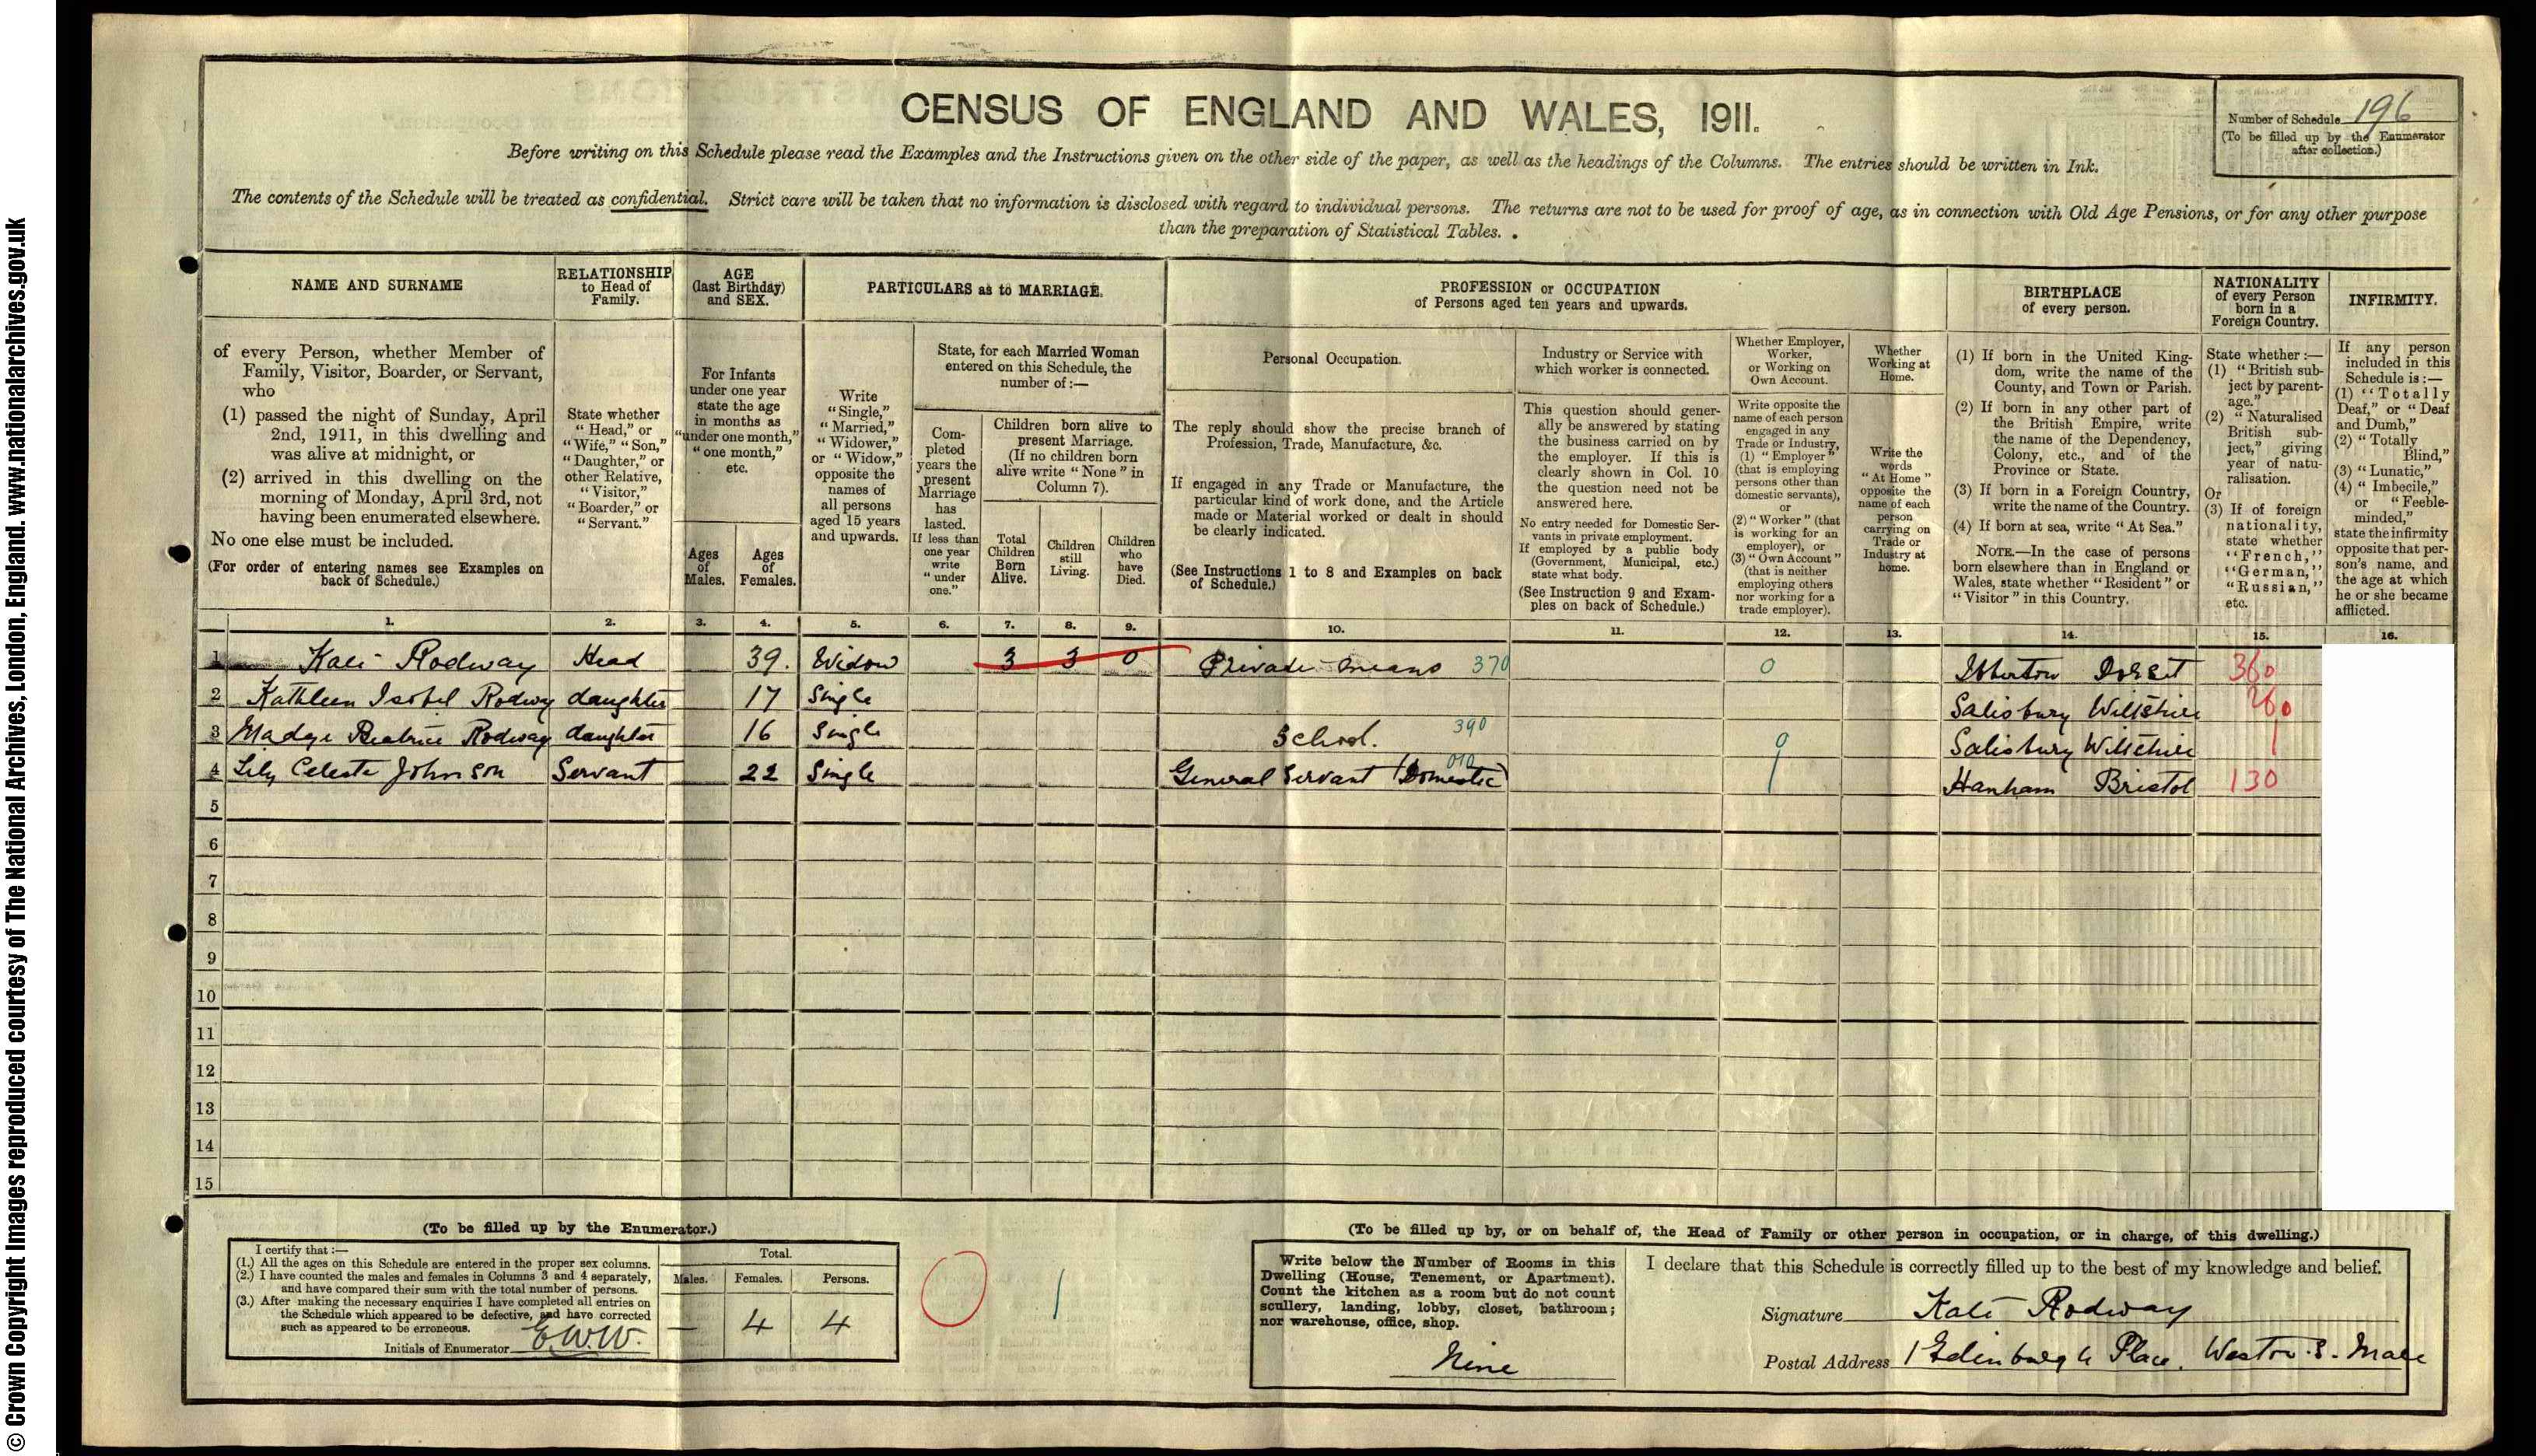 © Crown Copyright Images reproduced courtesy of The National Archives, London, England. www.nationalarchives.gov.uk
CENSUS OF ENGLAND AND WALES, 1911.
Number of Schedule 196
(To be filled up by the Enumerator after collection.)
Before writing on this Schedule please read the Examples and the Instructions given on the other side of the paper, as well as the headings of the Columns. The entries should be written in Ink.
The contents of the Schedule will be treated as confidential. Strict care will be taken that no information is disclosed with regard to individual persons. The returns are not to be used for proof of age, as in connection with Old Age Pensions, or for any other purpose
than the preparation of Statistical Tables.
NAME AND SURNAME
of every Person, whether Member of
Family, Visitor, Boarder, or Servant,
who
(1) passed the night of Sunday, April
2nd, 1911, in this dwelling and
was alive at midnight, or
(2) arrived in this dwelling on the
morning of Monday, April 3rd, not
having been enumerated elsewhere.
No one else must be included.
(For order of entering names see Examples on
back of Schedule.)
RELATIONSHIP
to Head of
Family.
State whether
"Head," or
"Wife," "Son,"
"Daughter," or
other Relative,
"Visitor,"
"Boarder," or
"Servant."
AGE
(last Birthday)
and SEX.
For Infants
under one year
state the age
in months as
"under one month,"
"one month,"
etc.
Ages
of
Males.
Ages
of
Females.
PARTICULARS as to MARRIAGE.
Write
"Single,"
"Married,"
"Widower,"
or "Widow,"
opposite the
names of
all persons
aged 15 years
and upwards.
State, for each Married Woman
entered on this Schedule, the
number of:—
Com-
pleted
years the
present
Marriage
has
lasted.
If less than
one year
write
"under
one."
Children born alive to
present Marriage.
(If no children born
alive write "None" in
Column 7).
Total
Children
Born
Alive.
Children
still
Living.
Children
who
have
Died.
PROFESSION or OCCUPATION
of Persons aged ten years and upwards.
Personal Occupation.
The reply should show the precise branch of
Profession, Trade, Manufacture, &c.
If engaged in any Trade or Manufacture, the
particular kind of work done, and the Article
made or Material worked or dealt in should
be clearly indicated.
(See Instructions 1 to 8 and Examples on back
of Schedule.)
Industry or Service with
which worker is connected.
This question should gener-
ally be answered by stating
the business carried on by
the employer. If this is
clearly shown in Col. 10
the question need not be
answered here.
No entry needed for Domestic Ser-
vants in private employment.
If employed by a public body
(Government, Municipal, etc.)
state what body.
(See Instruction 9 and Exam-
ples on back of Schedule.)
Whether Employer,
Worker,
or Working on
Own Account.
Write opposite the
name of each person
engaged in any
Trade or Industry,
(1) "Employer"
(that is employing
persons other than
domestic servants),
or
(2) "Worker" (that
is working for an
employer), or
(3) "Own Account"
(that is neither
employing others
nor working for a
trade employer).
Whether
Working at
Home.
Write the
words
"At Home"
opposite the
name of each
person
carrying on
Trade or
Industry at
home.
BIRTHPLACE
of every person.
(1) If born in the United King-
dom, write the name of the
County, and Town or Parish.
(2) If born in any other part of
the British Empire, write
the name of the Dependency,
Colony, etc., and of the
Province or State.
(3) If born in a Foreign Country,
write the name of the Country.
(4) If born at sea, write "At Sea."
NOTE.—In the case of persons
born elsewhere than in England or
Wales, state whether "Resident" or
"Visitor" in this Country.
NATIONALITY
of every Person
born in a
Foreign Country.
State whether:—
(1) "British sub-
ject by parent-
age."
(2) "Naturalised
British sub-
ject," giving
year of natu-
ralisation.
Or
(3) If of foreign
nationality,
state whether
"French,"
"German,"
"Russian,"
etc.
INFIRMITY.
If any person
included in this
Schedule is:—
(1) "Totally
Deaf," or "Deaf
and Dumb,"
(2) "Totally
Blind,"
(3) "Lunatic,"
(4) "Imbecile,"
or "Feeble-
minded,"
state the infirmity
opposite that per-
son's name, and
the age at which
he or she became
afflicted.
1. 2. 3. 4. 5. 6. 7. 8. 9. 10. 11. 12. 13. 14. 15. 16.
1 Kate Rodway Head 39. Widow 3 3 0 Private means 370 0 Ibberton Dorset 360
2 Kathleen Isobel Rodway daughter 17 Single Salisbury Wiltshire 260
3 Madge Beatrice Rodway daughter 16 Single School. 390 9 Salisbury Wiltshire 1
4 Lily Celeste Johnson Servant 22 Single General Servant (Domestic) 010 1 Hanham Bristol 130
5
6
7
8
9
10
11
12
13
14
15
(To be filled up by the Enumerator.)
I certify that:—
(1.) All the ages on this Schedule are entered in the proper sex columns.
(2.) I have counted the males and females in Columns 3 and 4 separately,
and have compared their sum with the total number of persons.
(3.) After making the necessary enquiries I have completed all entries on
the Schedule which appeared to be defective, and have corrected
such as appeared to be erroneous.
Initials of Enumerator E.W.W.
Total.
Males. Females. Persons.
— 4 4
0 1
(To be filled up by, or on behalf of, the Head of Family or other person in occupation, or in charge, of this dwelling.)
Write below the Number of Rooms in this
Dwelling (House, Tenement, or Apartment).
Count the kitchen as a room but do not count
scullery, landing, lobby, closet, bathroom;
nor warehouse, office, shop.
Nine
I declare that this Schedule is correctly filled up to the best of my knowledge and belief.
Signature Kate Rodway
Postal Address 1 Edinburgh Place. Weston-S-Mare